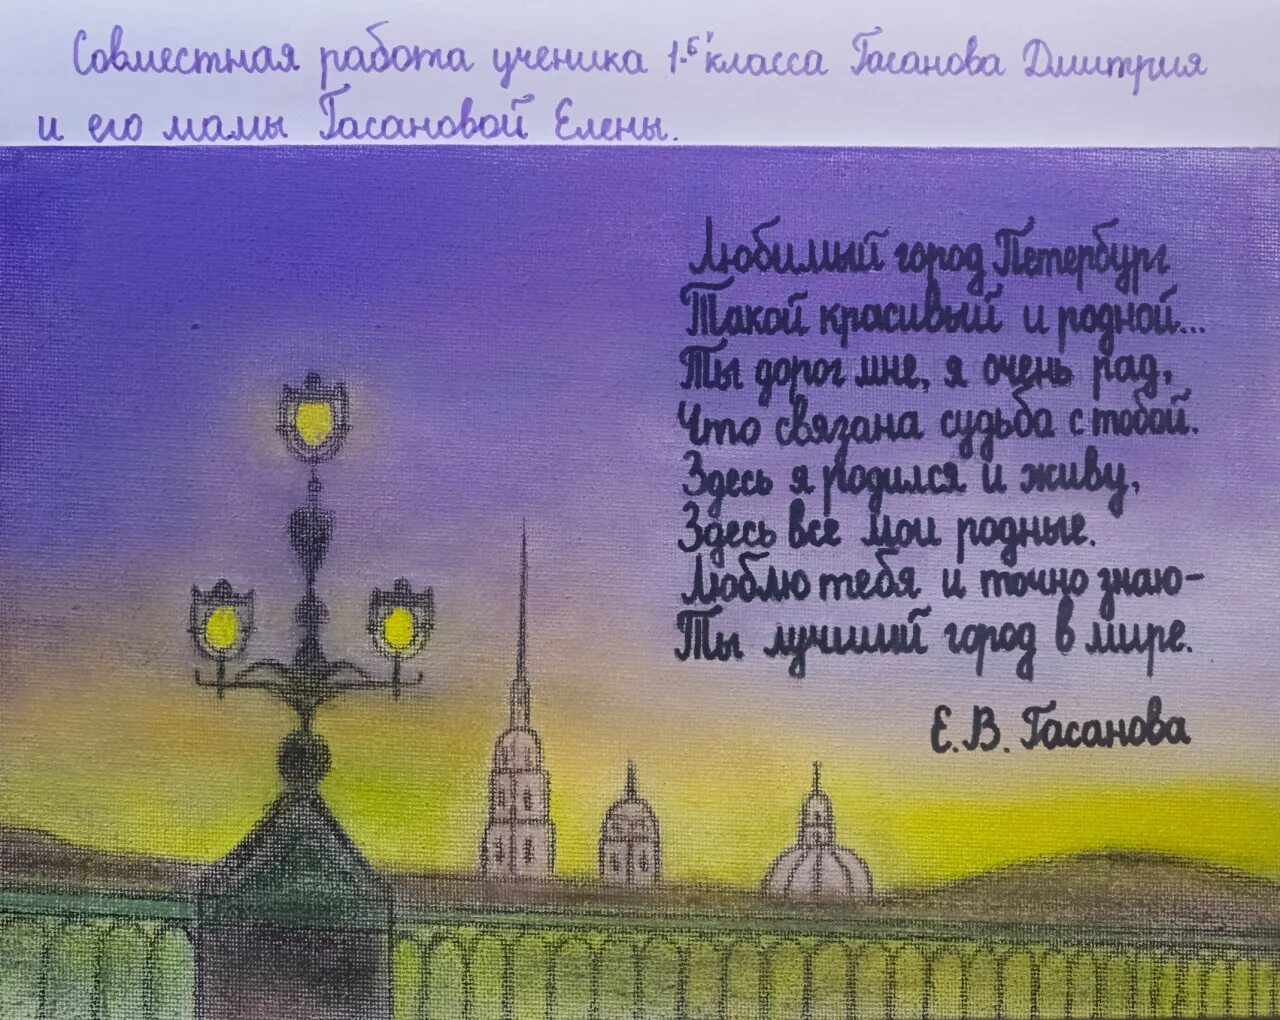 Совместная работа ученика 1."б" класса Гасанова Дмитрия
и его мамы Гасановой Елены.
Любимый город Петербург
Такой красивый и родной...
Ты дорог мне, я очень рад,
Что связана судьба с тобой.
Здесь я родился и живу,
Здесь все мои родные.
Люблю тебя и точно знаю-
Ты лучший город в мире.
Е.В. Гасанова